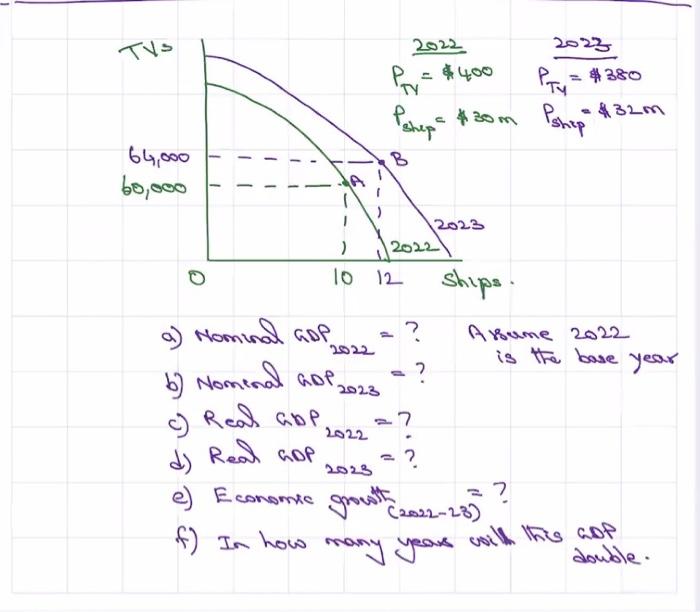 TVs
2022
2023
P_TV = $400
P_TV = $380
P_ship = $30m
P_ship = $32m
64,000
B
60,000
A
2023
2022
0
10
12
Ships.
a) Nominal GDP_2022 = ?
Assume 2022
is the base year
b) Nominal GDP_2023 = ?
c) Real GDP_2022 = ?
d) Real GDP_2023 = ?
e) Economic growth_(2022-23) = ?
f) In how many years will this GDP
double.